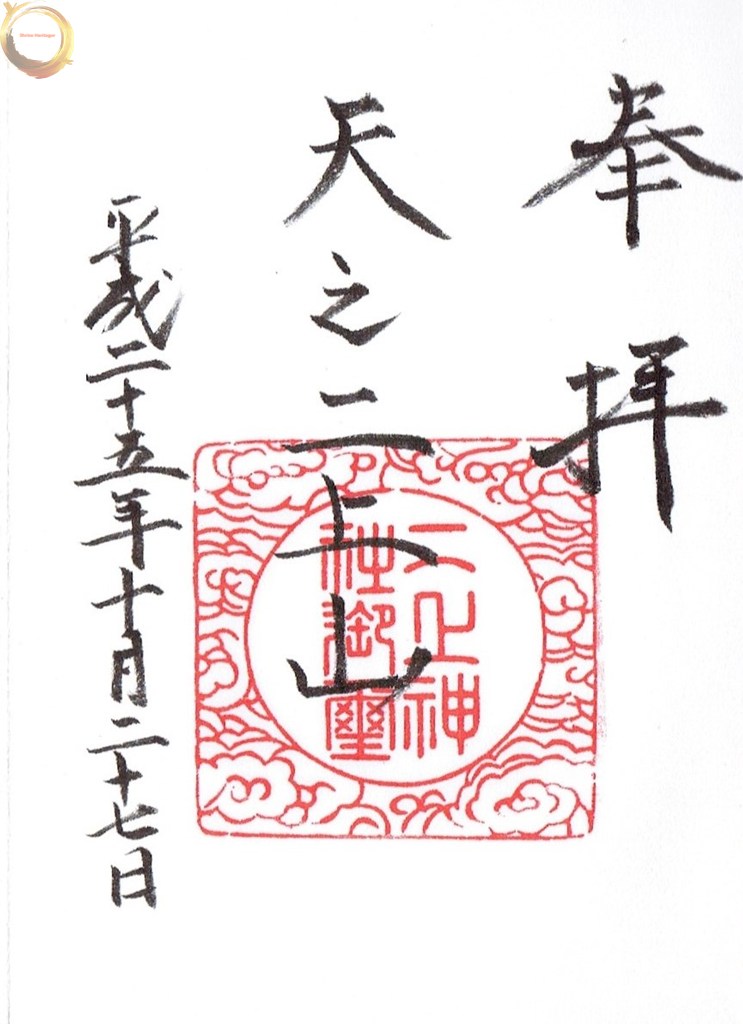 奉拝
天之二上山
二上神社御璽
平成二十五年十月二十七日